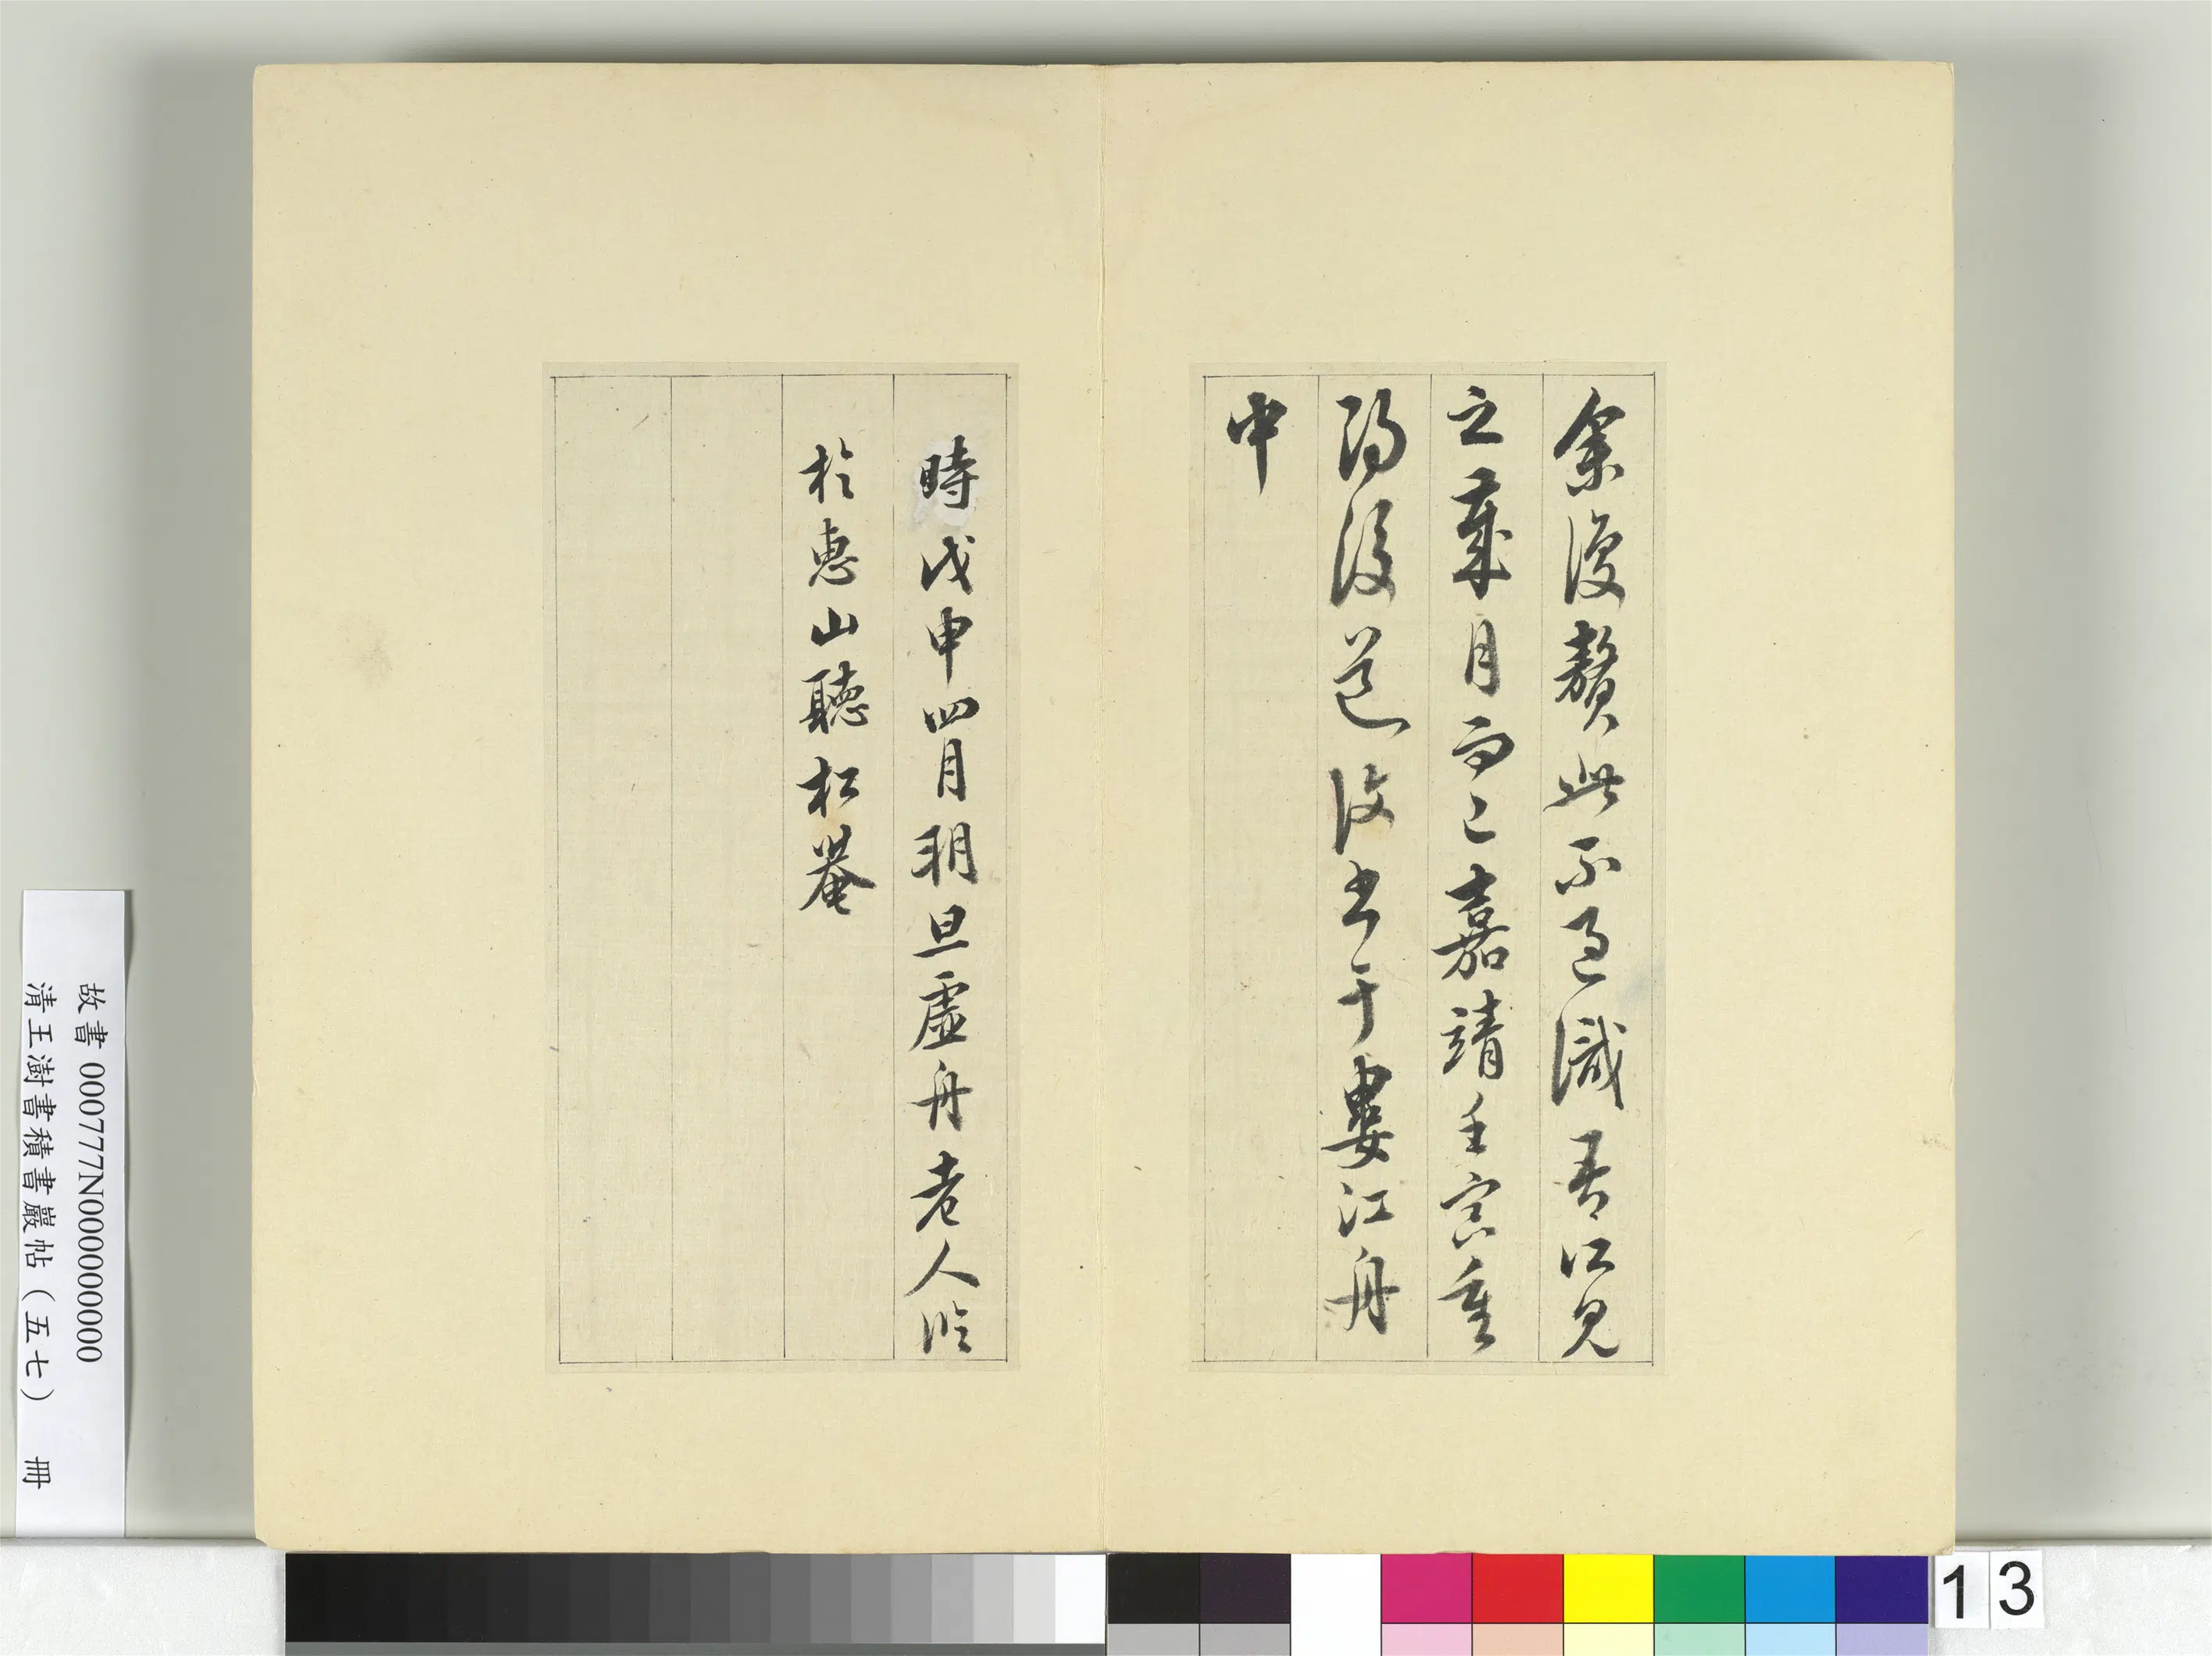 余復贅此不過識吾所見
之歲月而已嘉靖壬寅重
陽後道復書于婁江舟
中
時戊申四月朔旦虛舟老人臨
於惠山聽松菴
故書000777N000000000
清王澍書積書巖帖(五七) 冊
13